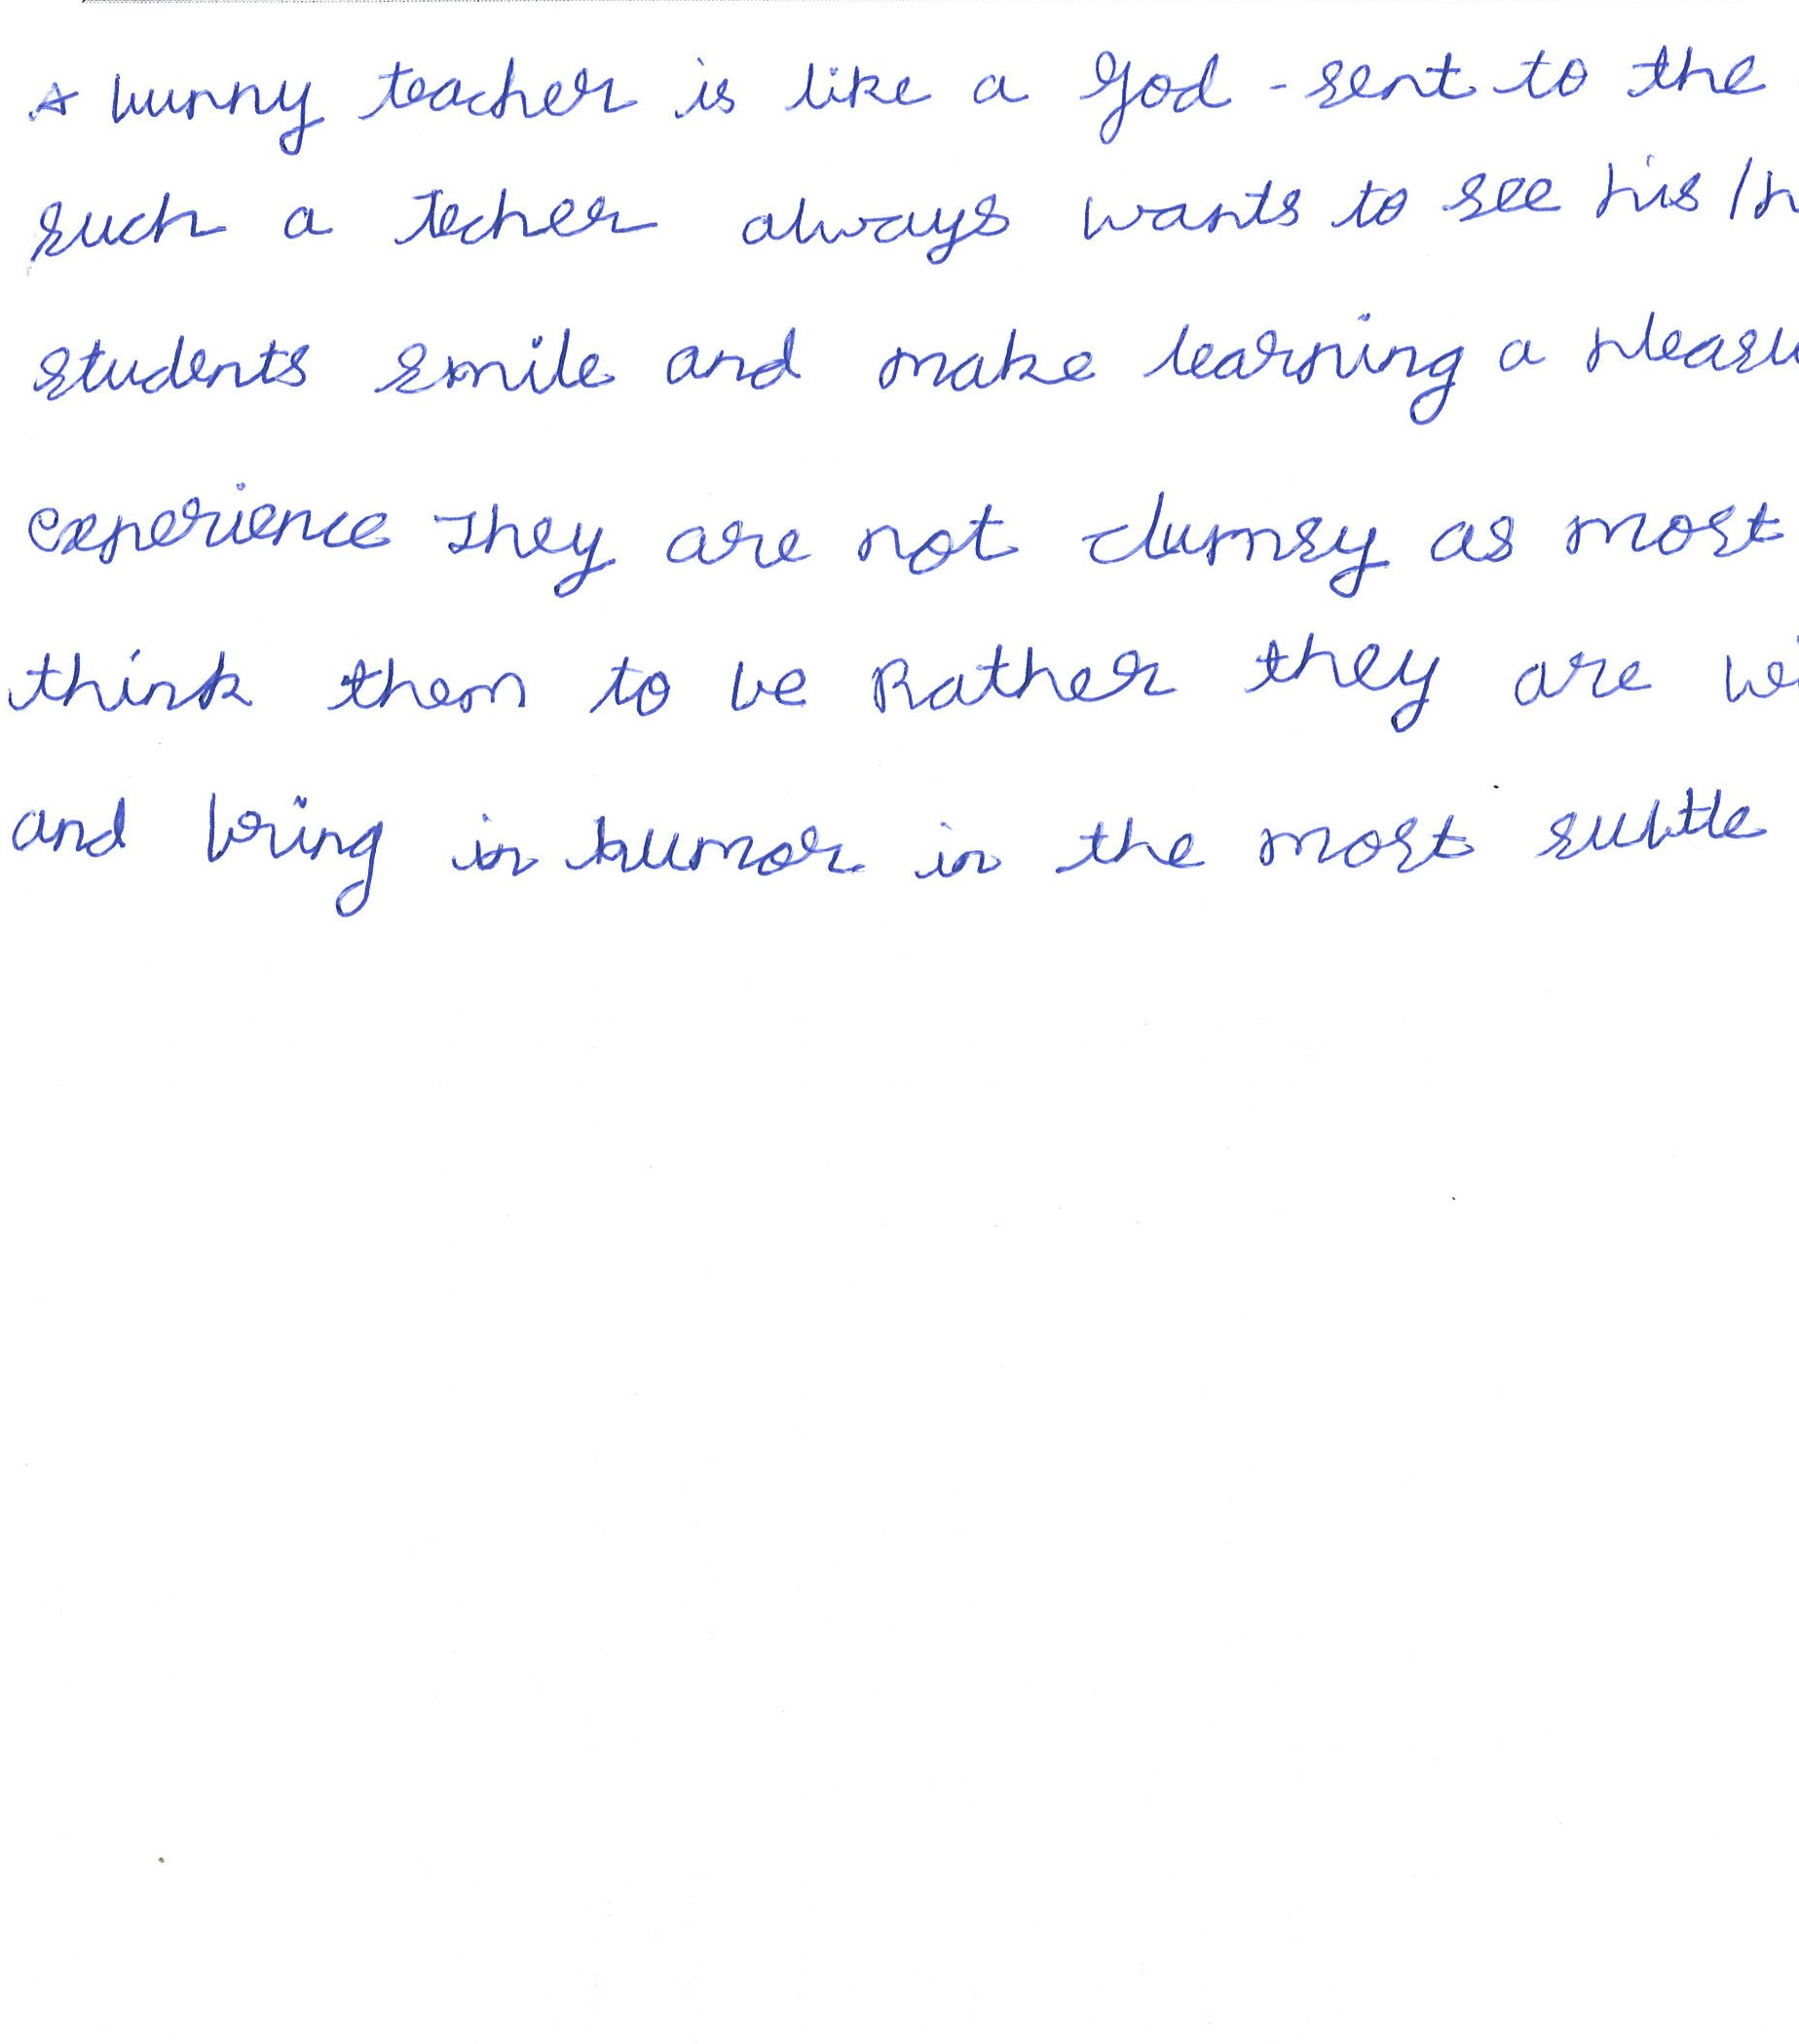 A bunny teacher is like a God-sent to the
such a techer always wants to see his/h
students smile and make learning a pleasu
experience They are not clumsy as most
think them to be Rather they are wi
and bring in humor in the most subtle